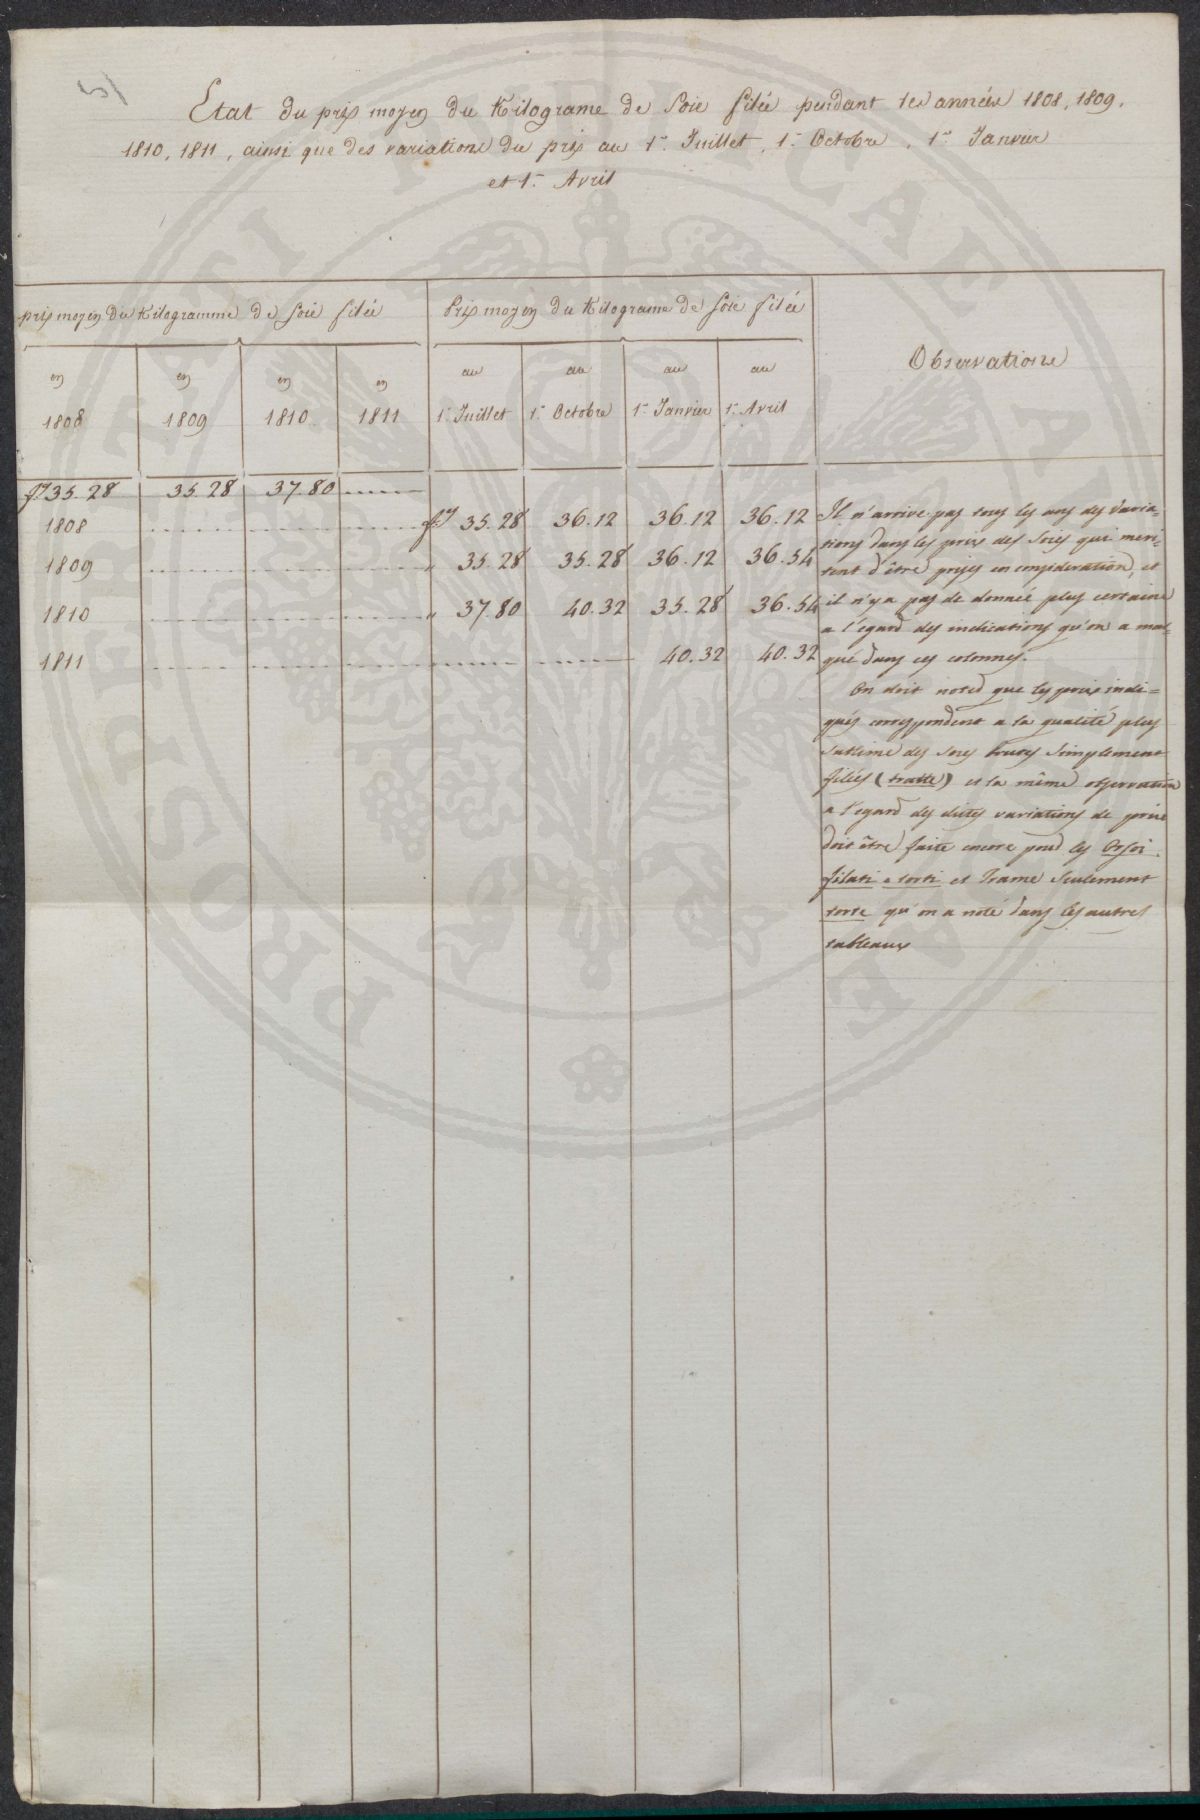 51
Etat du prix moyen du Kilograme de Soie filée pendant les années 1808, 1809,
1810, 1811, ainsi que des variations du prix au 1.er Juillet, 1.er Octobre, 1.er Janvier
et 1.er Avril
prix moyen du Kilogramme de Soie filée
Prix moyen du Kilograme de Soie filée
Observations
en 1808
en 1809
en 1810
en 1811
au 1.er Juillet
au 1.er Octobre
au 1.er Janvier
au 1.er Avril
35.28 35.28 37.80
1808 35.28 36.12 36.12 36.12
1809 " 35.28 35.28 36.12 36.54
1810 " 37.80 40.32 35.28 36.54
1811 40.32 40.32
Il n'arrive pas tous les ans des varia-
tions dans les prix des soies qui meri-
tent d'être prises en consideration, et
il n'y a pas de donnée plus certaine
a l'égard des indications qu'on a mar-
qué dans ces colonnes.
On doit noter que les prix indi=
qués correspondent a la qualité plus
sublime des soies brutes simplement
filées (tratte) et la même observation
a l'egard des dites variations de prix
doit être faite encore pour les Orsoi
filati e torti et Trame seulement
torte qu'on a noté dans les autres
tableaux
PROSPERITATI PUBLICAE AUGENDAE